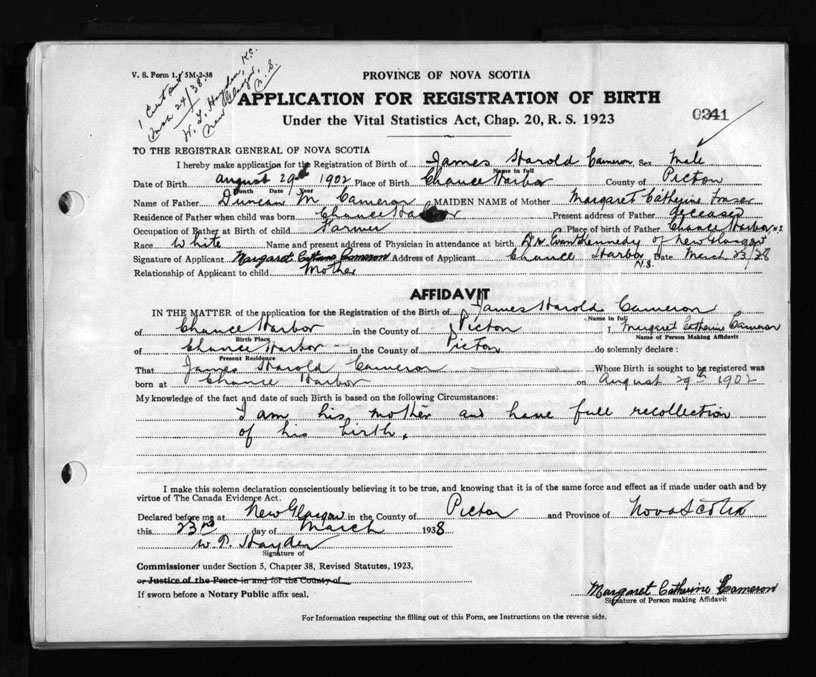 V. S. Form 1. 5M-2-38
1 Cert out
Mar 24/38.
W. P. Hayden, K.C.
New Glasgow,
N. S.
PROVINCE OF NOVA SCOTIA
APPLICATION FOR REGISTRATION OF BIRTH
Under the Vital Statistics Act, Chap. 20, R. S. 1923
TO THE REGISTRAR GENERAL OF NOVA SCOTIA
I hereby make application for the Registration of Birth of James Harold Cameron Sex Male
Name in full
Date of Birth August 29th 1902 Place of Birth Chance Harbor County of Pictou
Month Date Year
Name of Father Duncan M. Cameron MAIDEN NAME of Mother Margaret Catherine Fraser
Residence of Father when child was born Chance Harbor Present address of Father deceased
Occupation of Father at Birth of child Farmer Place of Birth of Father Chance Harbor N.S.
Race White Name and present address of Physician in attendance at birth Dr. Evan Kennedy of New Glasgow
Signature of Applicant Margaret Catherine Cameron Address of Applicant Chance Harbor N.S. Date March 23/38
Relationship of Applicant to child Mother
AFFIDAVIT
IN THE MATTER of the application for the Registration of the Birth of James Harold Cameron
Name in full
of Chance Harbor in the County of Pictou I, Margaret Catherine Cameron
Birth Place Name of Person Making Affidavit
of Chance Harbor in the County of Pictou do solemnly declare:
Present Residence
That James Harold Cameron Whose Birth is sought to be registered was
born at Chance Harbor on August 29th 1902
My knowledge of the fact and date of such Birth is based on the following Circumstances:
I am his mother and have full recollection
of his birth.
I make this solemn declaration conscientiously believing it to be true, and knowing that it is of the same force and effect as if made under oath and by
virtue of The Canada Evidence Act.
Declared before me at New Glasgow in the County of Pictou and Province of Nova Scotia
this 23rd day of March 1938
W. P. Hayden
Signature of
Commissioner under Section 5, Chapter 38, Revised Statutes, 1923,
or Justice of the Peace in and for the County of
If sworn before a Notary Public affix seal.
Margaret Catherine Cameron
Signature of Person making Affidavit
For Information respecting the filling out of this Form, see Instructions on the reverse side.